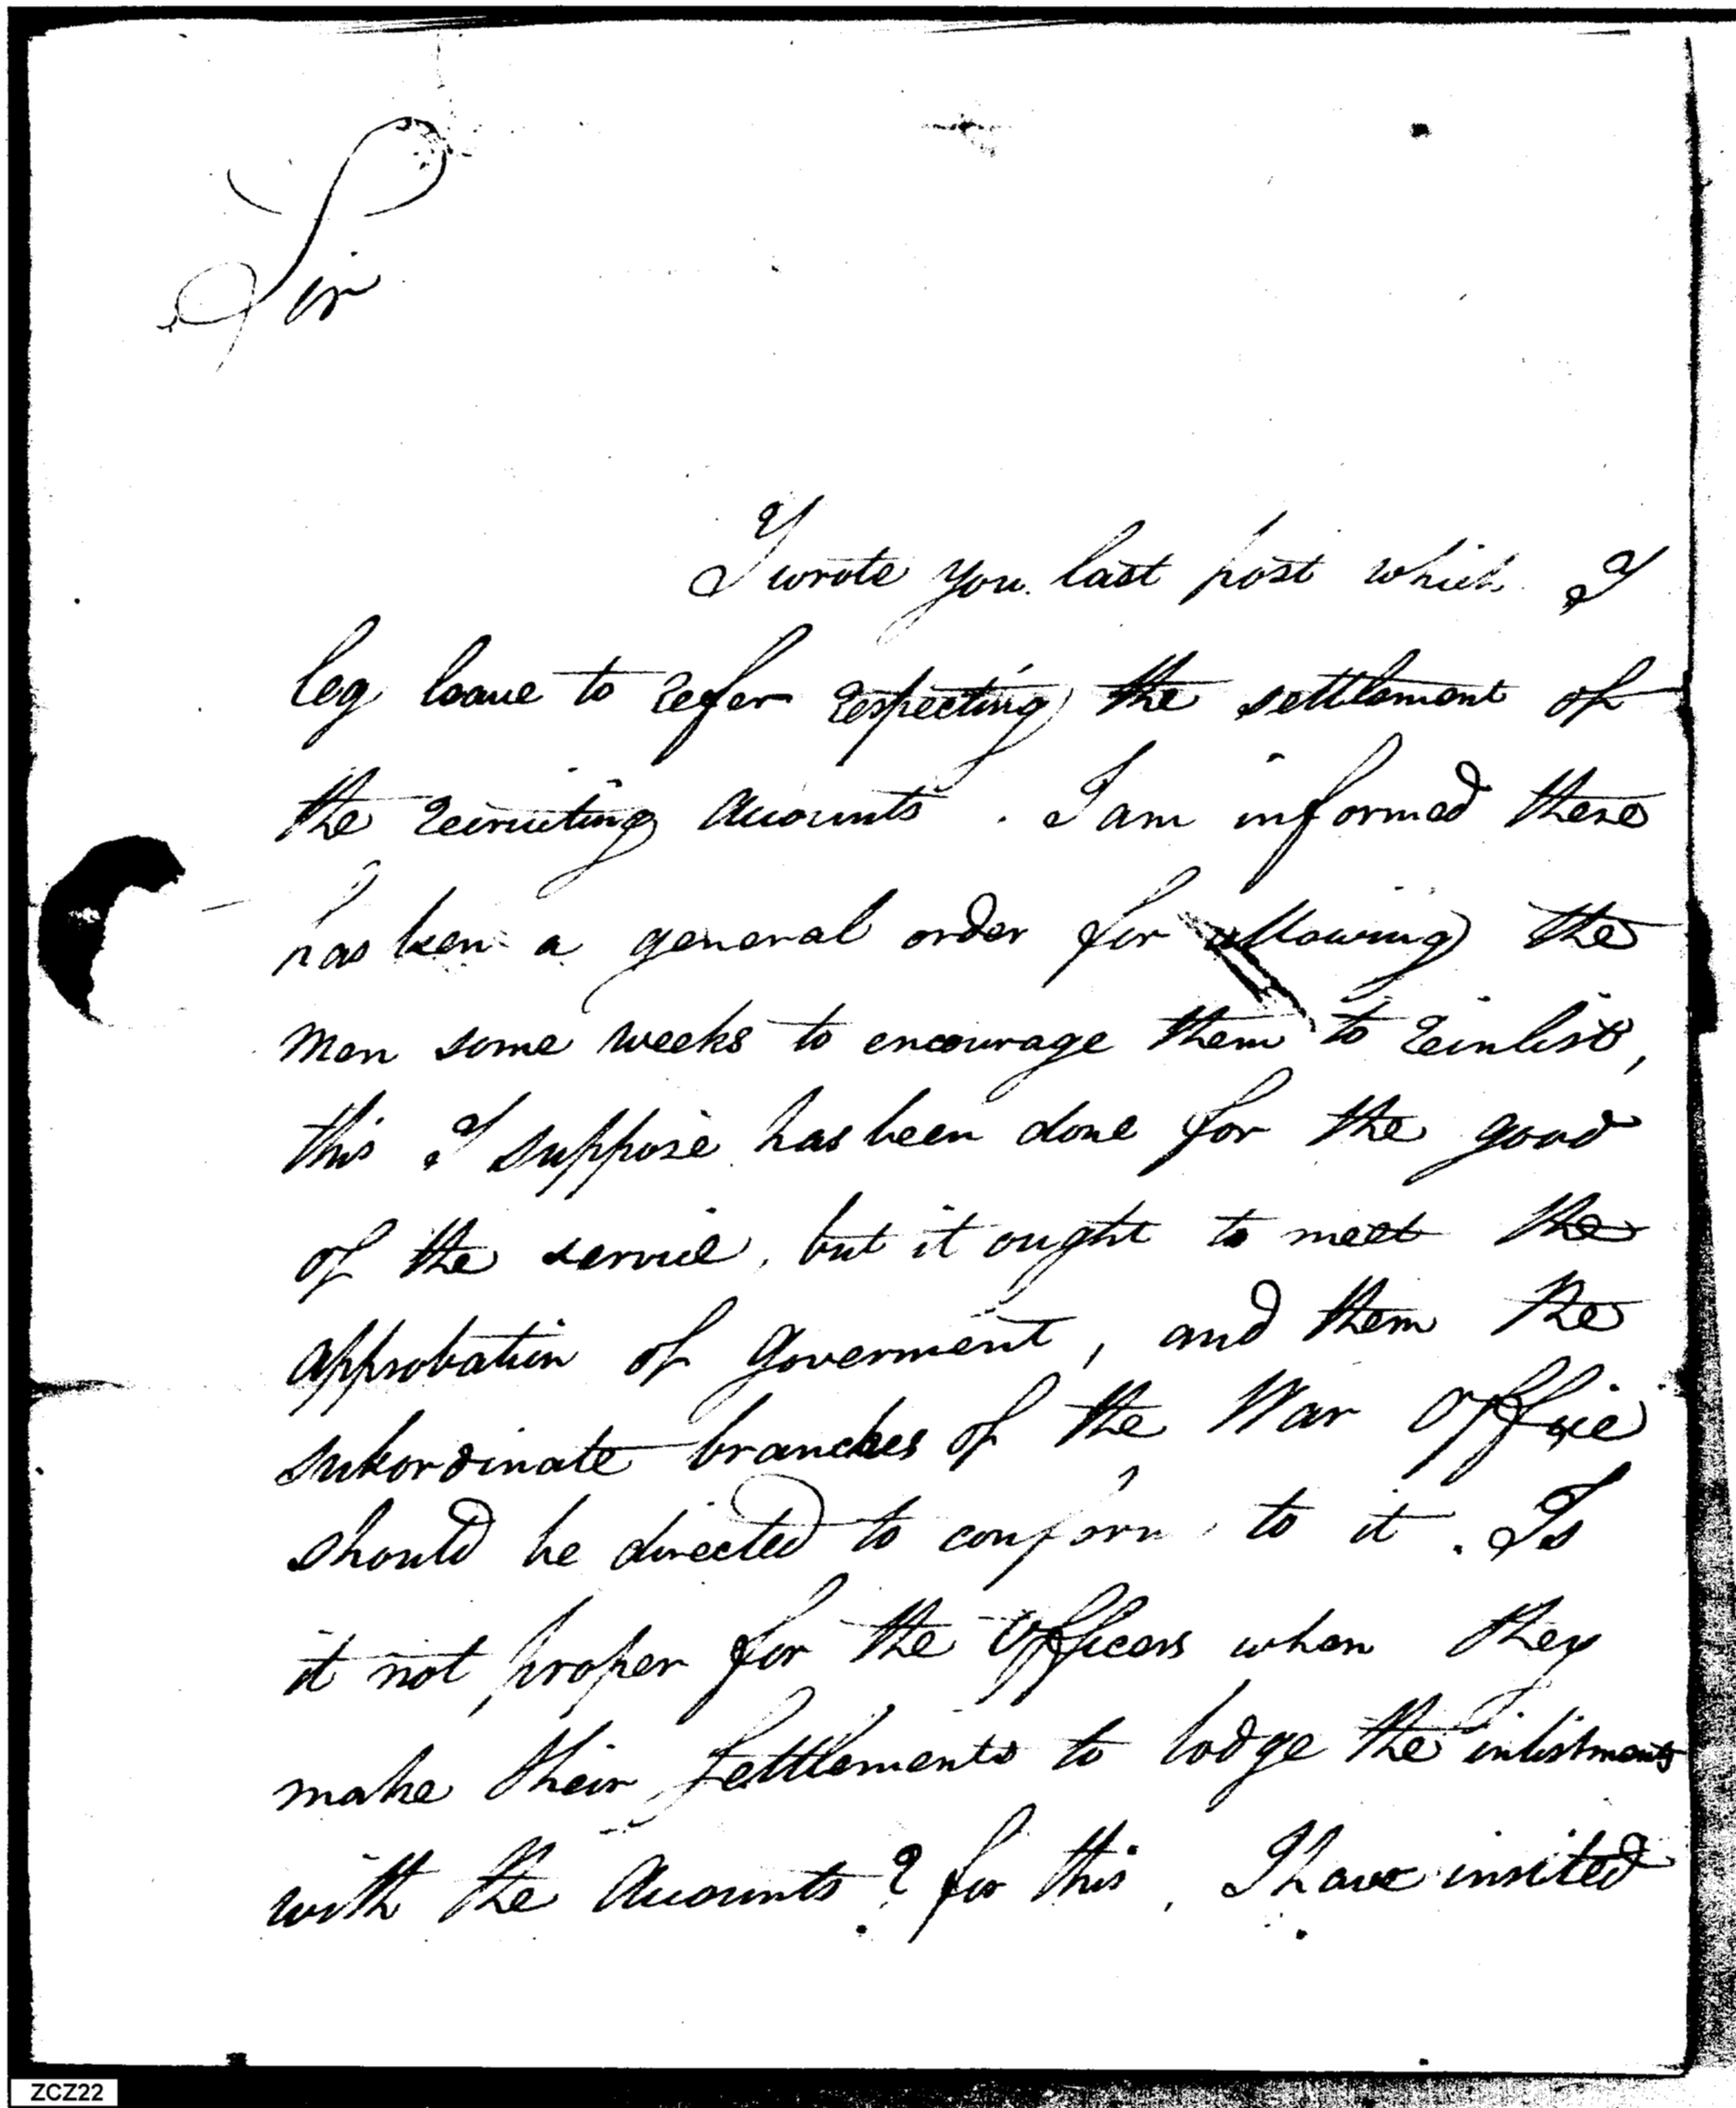 Sir
I wrote you last post which I
beg leave to refer respecting the settlement of
the recruiting Accounts. I am informed there
has been a general order for allowing the
men some weeks to encourage them to reinlist,
this I suppose has been done for the good
of the service, but it ought to meet the
approbation of Goverment, and them the
subordinate branches of the War Office
should be directed to conform to it. Is
it not proper for the Officers when they
make their Settlements to lodge the inlistments
with the Accounts? for this, I have insited
ZCZ22